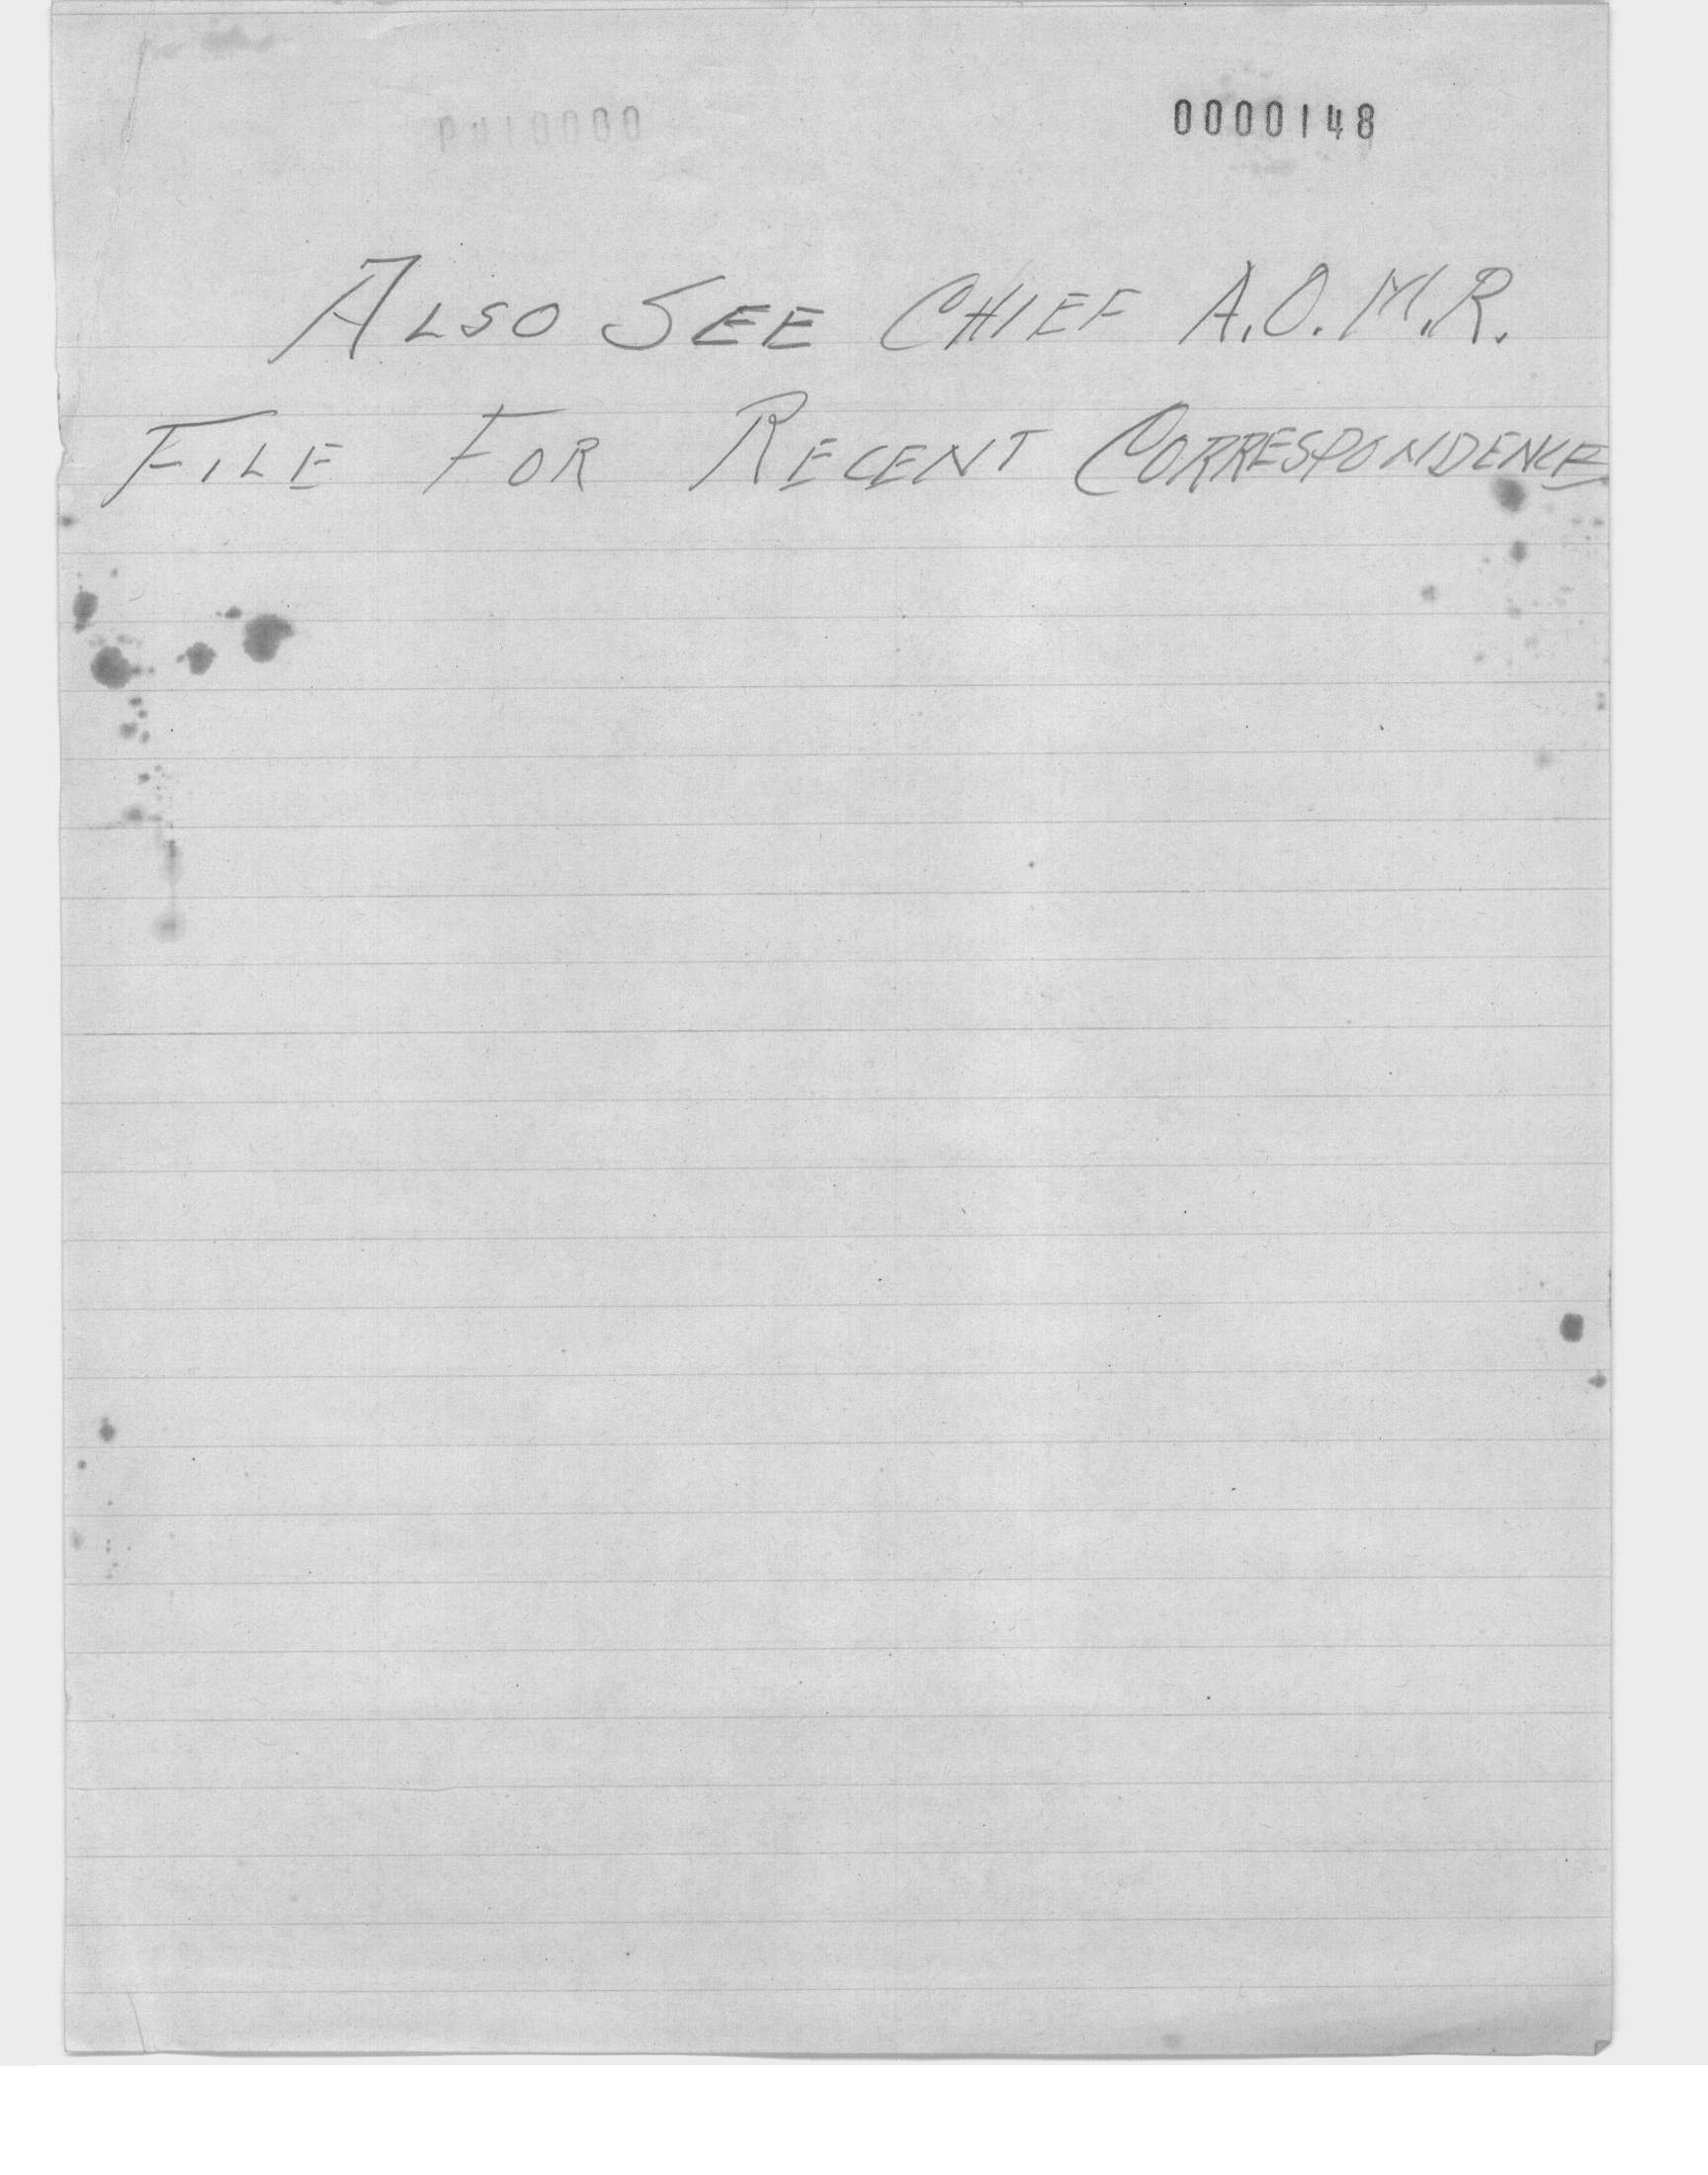 0000148
ALSO SEE CHIEF A.O.M.R.
FILE FOR RECENT CORRESPONDENCE